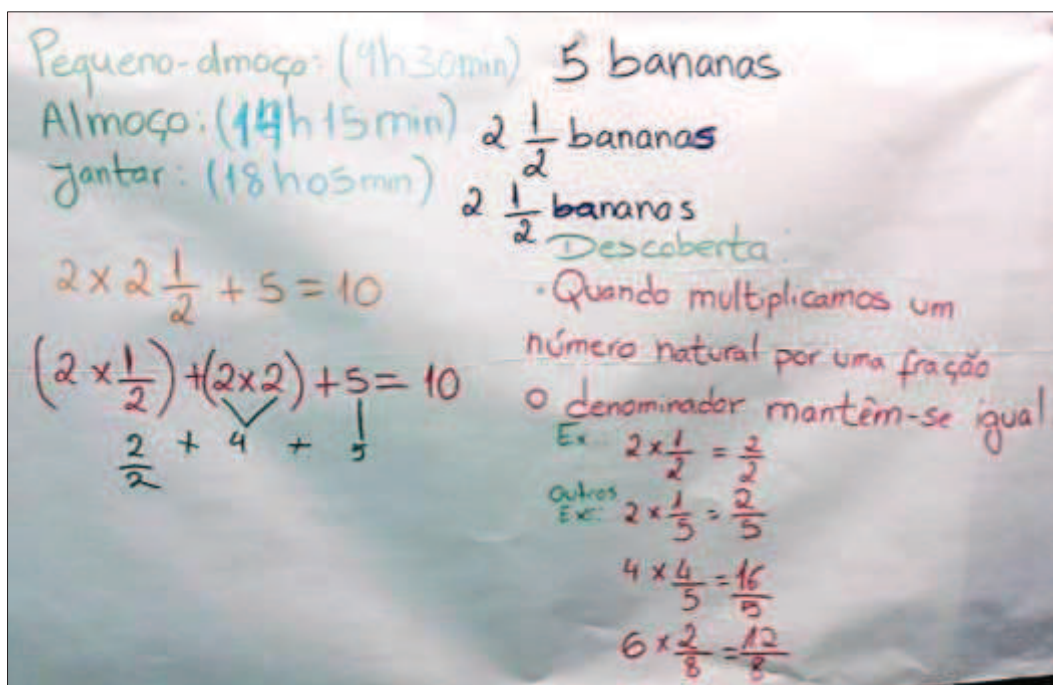 Pequeno-almoço: (9h30min) 5 bananas
Almoço: (14h15min) 2 1/2 bananas
Jantar: (18h05min) 2 1/2 bananas
2 × 2 1/2 + 5 = 10
(2 × 1/2) + (2×2) + 5 = 10
2/2 + 4 + 5
Descoberta
· Quando multiplicamos um
número natural por uma fração
o denominador mantêm-se igual
Ex.: 2 × 1/2 = 2/2
Outros
Ex: 2 × 1/5 = 2/5
4 × 4/5 = 16/5
6 × 2/8 = 12/8